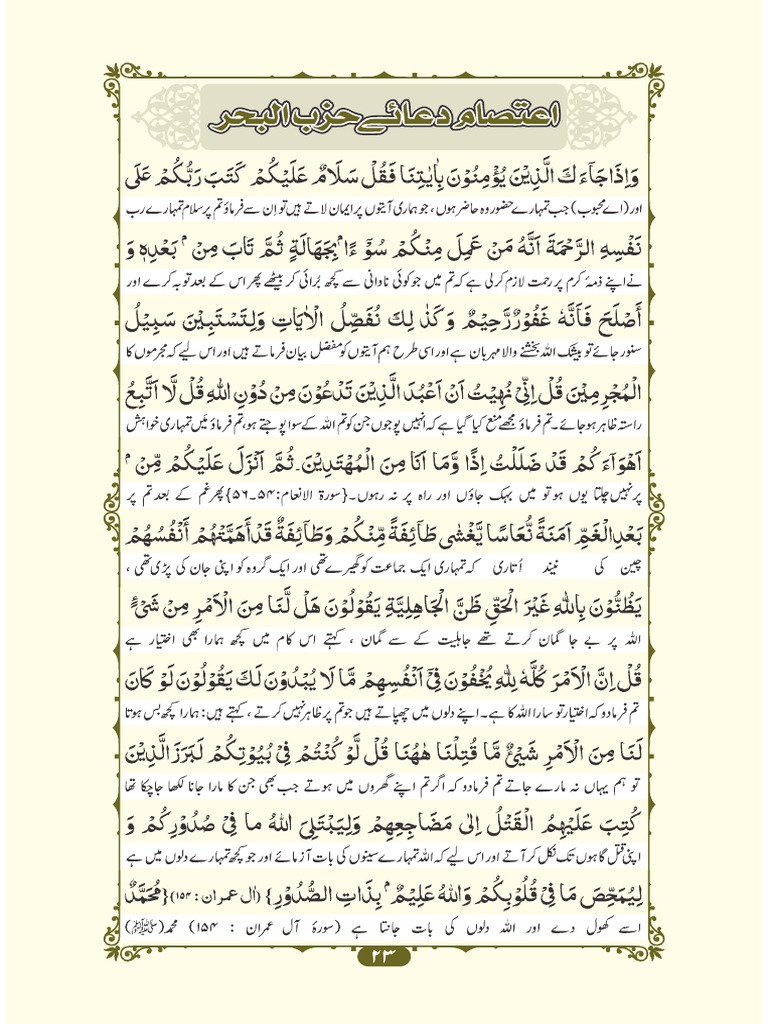 اعتصام دعائے حزب البحر
وَاِذَا جَآءَكَ الَّذِيْنَ يُؤْمِنُوْنَ بِاٰيٰتِنَا فَقُلْ سَلَامٌ عَلَيْكُمْ كَتَبَ رَبُّكُمْ عَلٰى
اور (اے محبوب) جب تمہارے حضور وہ حاضر ہوں، جو ہماری آیتوں پر ایمان لاتے ہیں تو اِن سے فرماؤ تم پر سلام تمہارے رب
نَفْسِهِ الرَّحْمَةَ اَنَّهٗ مَنْ عَمِلَ مِنْكُمْ سُوْٓءًاۢ بِجَهَالَةٍ ثُمَّ تَابَ مِنْۢ بَعْدِهٖ وَ
نے اپنے ذمۂ کرم پر رحمت لازم کرلی ہے کہ تم میں جو کوئی نادانی سے کچھ بُرائی کر بیٹھے پھر اس کے بعد توبہ کرے اور
أَصْلَحَ فَأَنَّهٗ غَفُوْرٌ رَّحِيْمٌ وَكَذٰلِكَ نُفَصِّلُ الْاٰيَاتِ وَلِتَسْتَبِيْنَ سَبِيْلُ
سنور جائے تو بیشک اللہ بخشنے والا مہربان ہے اور اسی طرح ہم آیتوں کو مفصل بیان فرماتے ہیں اور اس لیے کہ مجرموں کا
الْمُجْرِمِيْنَ قُلْ اِنِّيْ نُهِيْتُ اَنْ اَعْبُدَ الَّذِيْنَ تَدْعُوْنَ مِنْ دُوْنِ اللهِ قُلْ لَّا اَتَّبِعُ
راستہ ظاہر ہوجائے۔ تم فرماؤ مجھے منع کیا گیا ہے کہ انہیں پوجوں جن کو تم اللہ کے سوا پوجتے ہو، تم فرماؤ مَیں تمہاری خواہش
اَهْوَآءَكُمْ قَدْ ضَلَلْتُ اِذًا وَّمَا اَنَا مِنَ الْمُهْتَدِيْنَ۔ ثُمَّ اَنْزَلَ عَلَيْكُمْ مِّنْۢ
پر نہیں چلتا یوں ہو تو میں بہک جاؤں اور راہ پر نہ رہوں۔{سورۃ الانعام:۵۴۔۵۶} پھر غم کے بعد تم پر
بَعْدِ الْغَمِّ اَمَنَةً نُّعَاسًا يَّغْشٰى طَآئِفَةً مِّنْكُمْ وَطَآئِفَةٌ قَدْ أَهَمَّتْهُمْ أَنْفُسُهُمْ
چین کی نیند اُتاری کہ تمہاری ایک جماعت کو گھیرے تھی اور ایک گروہ کو اپنی جان کی پڑی تھی ،
يَظُنُّوْنَ بِاللهِ غَيْرَ الْحَقِّ ظَنَّ الْجَاهِلِيَّةِ يَقُوْلُوْنَ هَلْ لَّنَا مِنَ الْاَمْرِ مِنْ شَيْءٍ
اللہ پر بے جا گمان کرتے تھے جاہلیت کے سے گمان ، کہتے اس کام میں کچھ ہمارا بھی اختیار ہے
قُلْ اِنَّ الْاَمْرَ كُلَّهٗ لِلّٰهِ يُخْفُوْنَ فِيْٓ اَنْفُسِهِمْ مَّا لَا يُبْدُوْنَ لَكَ يَقُوْلُوْنَ لَوْ كَانَ
تم فرمادو کہ اختیار تو سارا اللہ کا ہے۔ اپنے دلوں میں چھپاتے ہیں جو تم پر ظاہر نہیں کرتے ، کہتے ہیں: ہمارا کچھ بس ہوتا
لَنَا مِنَ الْاَمْرِ شَيْئٌ مَّا قُتِلْنَا هٰهُنَا قُلْ لَّوْ كُنْتُمْ فِيْ بُيُوْتِكُمْ لَبَرَزَ الَّذِيْنَ
تو ہم یہاں نہ مارے جاتے تم فرمادو کہ اگر تم اپنے گھروں میں ہوتے جب بھی جن کا مارا جانا لکھا جاچکا تھا
كُتِبَ عَلَيْهِمُ الْقَتْلُ اِلٰى مَضَاجِعِهِمْ وَلِيَبْتَلِيَ اللهُ مَا فِيْ صُدُوْرِكُمْ وَ
اپنی قتل گاہوں تک نکل کر آتے اور اس لیے کہ اللہ تمہارے سینوں کی بات آزمائے اور جو کچھ تمہارے دلوں میں ہے
لِيُمَحِّصَ مَا فِيْ قُلُوْبِكُمْ وَاللهُ عَلِيْمٌۢ بِذَاتِ الصُّدُوْرِ} (اٰل عمران : ۱۵۴) {مُحَمَّدٌ
اسے کھول دے اور اللہ دلوں کی بات جانتا ہے (سورۃ آل عمران : ۱۵۴) محمد(ﷺ)
۲۳